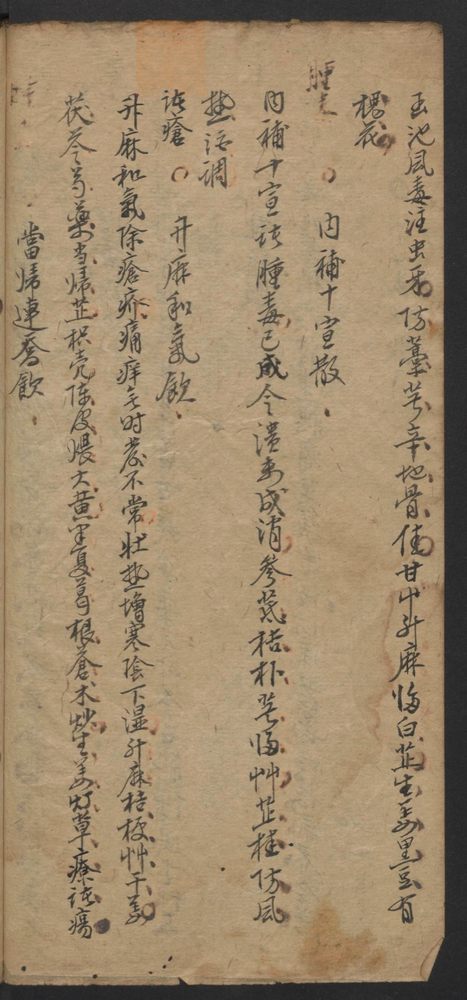 玉池風毒注虫牙防藁芎辛地骨倩甘艸升麻歸白芷生姜黑豆有
槐花
腫毒 〇 內補十宣散
內補十宣詃腫毒已成令潰未成消參芪桔朴芎歸艸芷桂防風
热酒調
詃瘡 〇 升麻和氣飲
升麻和氣除瘡疥痛痒無时發不常壯热增寒陰下湿升麻桔梗艸干姜
茯苓芍藥当歸芷枳壳陈皮煨大黄半夏葛根蒼术炒生姜灯草療詃瘍
當歸連翹飲